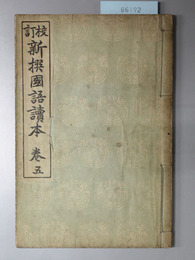 校訂
新撰國語讀本 卷五
86192